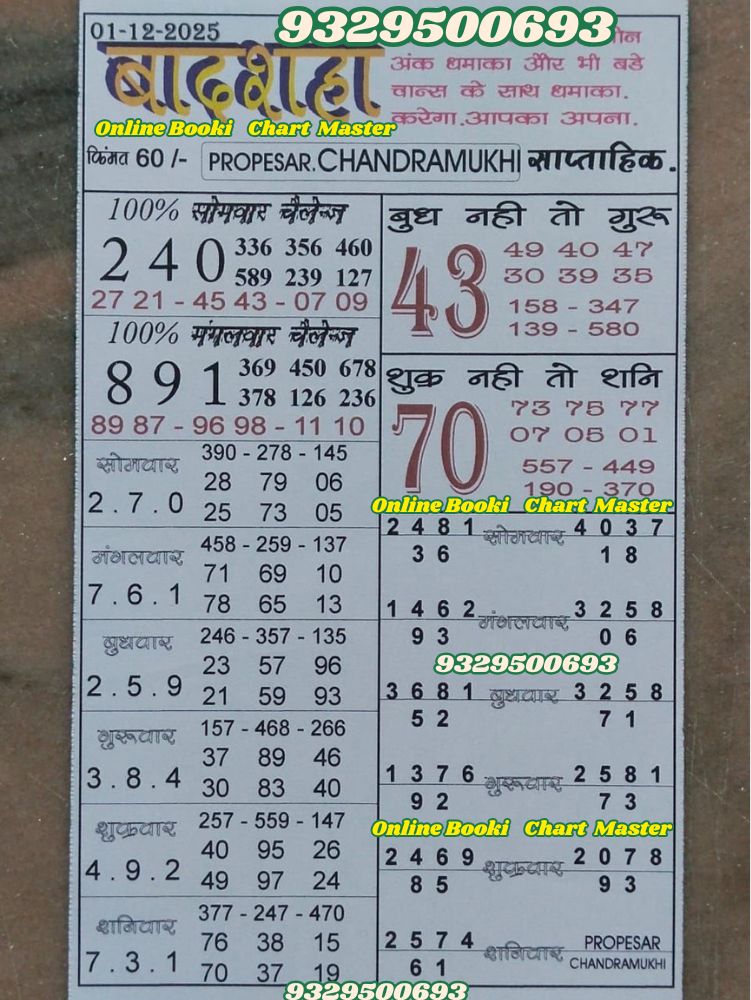 01-12-2025
9329500693
बादशाहा
अंक धमाका और भी बडे
चान्स के साथ धमाका.
करेगा.आपका अपना.
Online Booki Chart Master
किंमत 60 /- PROPESAR.CHANDRAMUKHI साप्ताहिक.
100% सोमवार चैलेन्ज
2 4 0
336 356 460
589 239 127
27 21 - 45 43 - 07 09
100% मंगलवार चैलेन्ज
8 9 1
369 450 678
378 126 236
89 87 - 96 98 - 11 10
सोमवार
2.7.0
390 - 278 - 145
28 79 06
25 73 05
मंगलवार
7.6.1
458 - 259 - 137
71 69 10
78 65 13
बुधवार
2.5.9
246 - 357 - 135
23 57 96
21 59 93
गुरूवार
3.8.4
157 - 468 - 266
37 89 46
30 83 40
शुक्रवार
4.9.2
257 - 559 - 147
40 95 26
49 97 24
शनिवार
7.3.1
377 - 247 - 470
76 38 15
70 37 19
बुध नही तो गुरू
43
49 40 47
30 39 35
158 - 347
139 - 580
शुक्र नही तो शनि
70
73 75 77
07 05 01
557 - 449
190 - 370
Online Booki Chart Master
2 4 8 1 सोमवार 4 0 3 7
3 6 1 8
1 4 6 2 मंगलवार 3 2 5 8
9 3 0 6
9329500693
3 6 8 1 बुधवार 3 2 5 8
5 2 7 1
1 3 7 6 गुरूवार 2 5 8 1
9 2 7 3
Online Booki Chart Master
2 4 6 9 शुक्रवार 2 0 7 8
8 5 9 3
2 5 7 4 शनिवार PROPESAR
6 1 CHANDRAMUKHI
9329500693